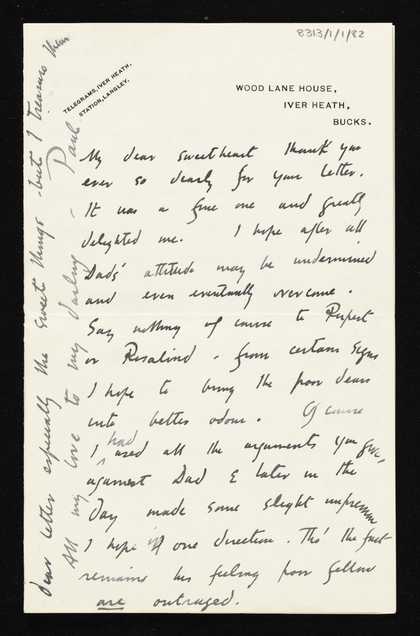 8313/1/1/82
TELEGRAMS, IVER HEATH.
STATION, LANGLEY.
WOOD LANE HOUSE,
IVER HEATH,
BUCKS.
My dear sweetheart Thank you
ever so dearly for your letter.
It was a fine one and greatly
delighted me. I hope after all
Dads' attitude may be undermined
and even eventually overcome.
Say nothing of course to Rupert
or Rosalind - from certain signs
I hope to bring the poor dears
into better odour. Of course
I had used all the arguments you give,
against Dad & later in the
day made some slight impression
I hope in one direction. Tho' the fact
remains his feelings poor fellow
are outraged.
dear letter especially the sweet things - but I treasure them
All my love to my darling - Paul